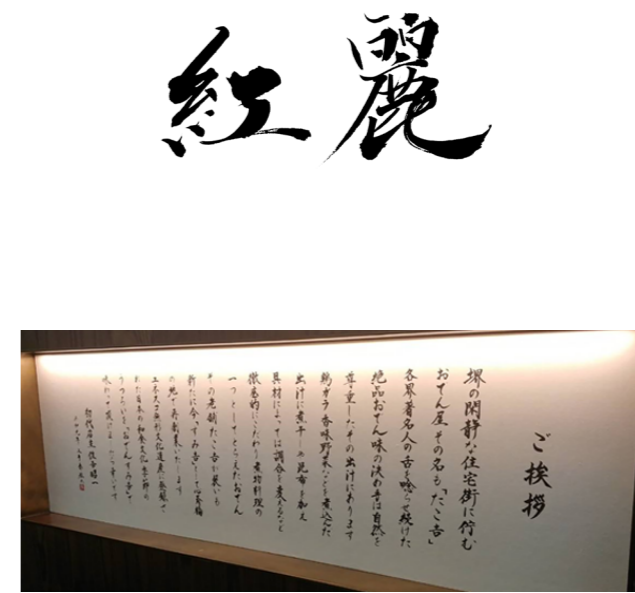 紅麗
ご挨拶
堺の閑静な住宅街に佇む
おでん屋その名も「たこ吉」
各界著名人の舌を唸らせ続けた
絶品おでん味の決め手は自然を
尊重したその出汁にあります
鶏ガラ香味野菜などを煮込んだ
出汁に煮干しや昆布を加え
具材によっては調合を変えるなど
徹底的にこだわり煮物料理の
一つとしてとらえたおでん
その老舗たこ吉が装いも
新たに今「すみ吉」として
の地で再創業いたします
ユネスコ無形文化遺産に登録さ
れた日本の和食文化
味わって